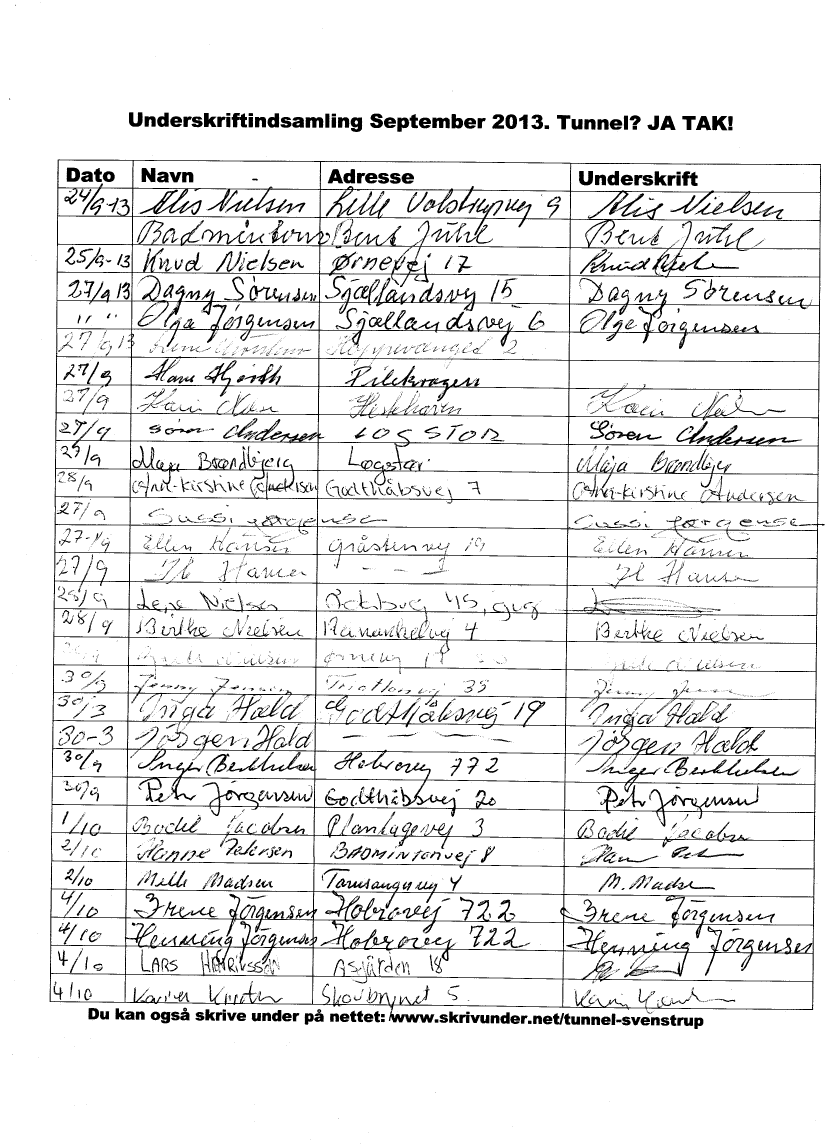 Underskriftindsamling September 2013. Tunnel? JA TAK!
Dato Navn - Adresse Underskrift
24/9-13 Alis Nielsen Lille Volstrupvej 9 Alis Nielsen
Badminton Bent Juhl Bent Juhl
25/9-13 Knud Nielsen Ørnevej 17 Knud
27/9 13 Dagny Sørensen Sjællandsvej 15 Dagny Sørensen
" " Olga Jørgensen Sjællandsvej 6 Olga Jørgensen
27/9 13 2
27/9 Hans Hjorth Pilekrogen
27/9 Karin Karin
27/9 Søren Andersen LOGSTOR Søren Andersen
27/9 Maja Brændbjerg Løgstør Maja
28/9 Ane-Kirstine Andersen Godthåbsvej 7 Ane-Kirstine Andersen
27/9 Sussi Jørgensen Sussi Jørgensen
27-/9 Ellen Hansen Gråstenvej 19 Ellen Hansen
27/9 Hansen - - - Hansen
28/9 Lene Nielsen 45, gug
28/9 Birthe Nielsen 4 Birthe Nielsen
Nielsen Nielsen
30/9 Jenny Jensen 35 Jenny
30/3 Inga Hald Godthåbsvej 19 Inga Hald
30-3 Jørgen Hald Jørgen Hald
30/9 Inger Berthelsen Hobrovej 772 Inger Berthelsen
30/9 Petr Jørgensen Godthåbsvej 20 Petr Jørgensen
1/10 Bodil Jacobsen Plantagevej 3 Bodil Jacobsen
2/10 Hanne Petersen BADMINTONVEJ 8
2/10 Mille Madsen 4 M. Madsen
4/10 Irene Jørgensen Hobrovej 722 Irene Jørgensen
4/10 Henning Jørgensen Hobrovej 722 Henning Jørgensen
4/10 LARS Asgården 18
4/10 Skovbrynet 5
Du kan også skrive under på nettet: www.skrivunder.net/tunnel-svenstrup